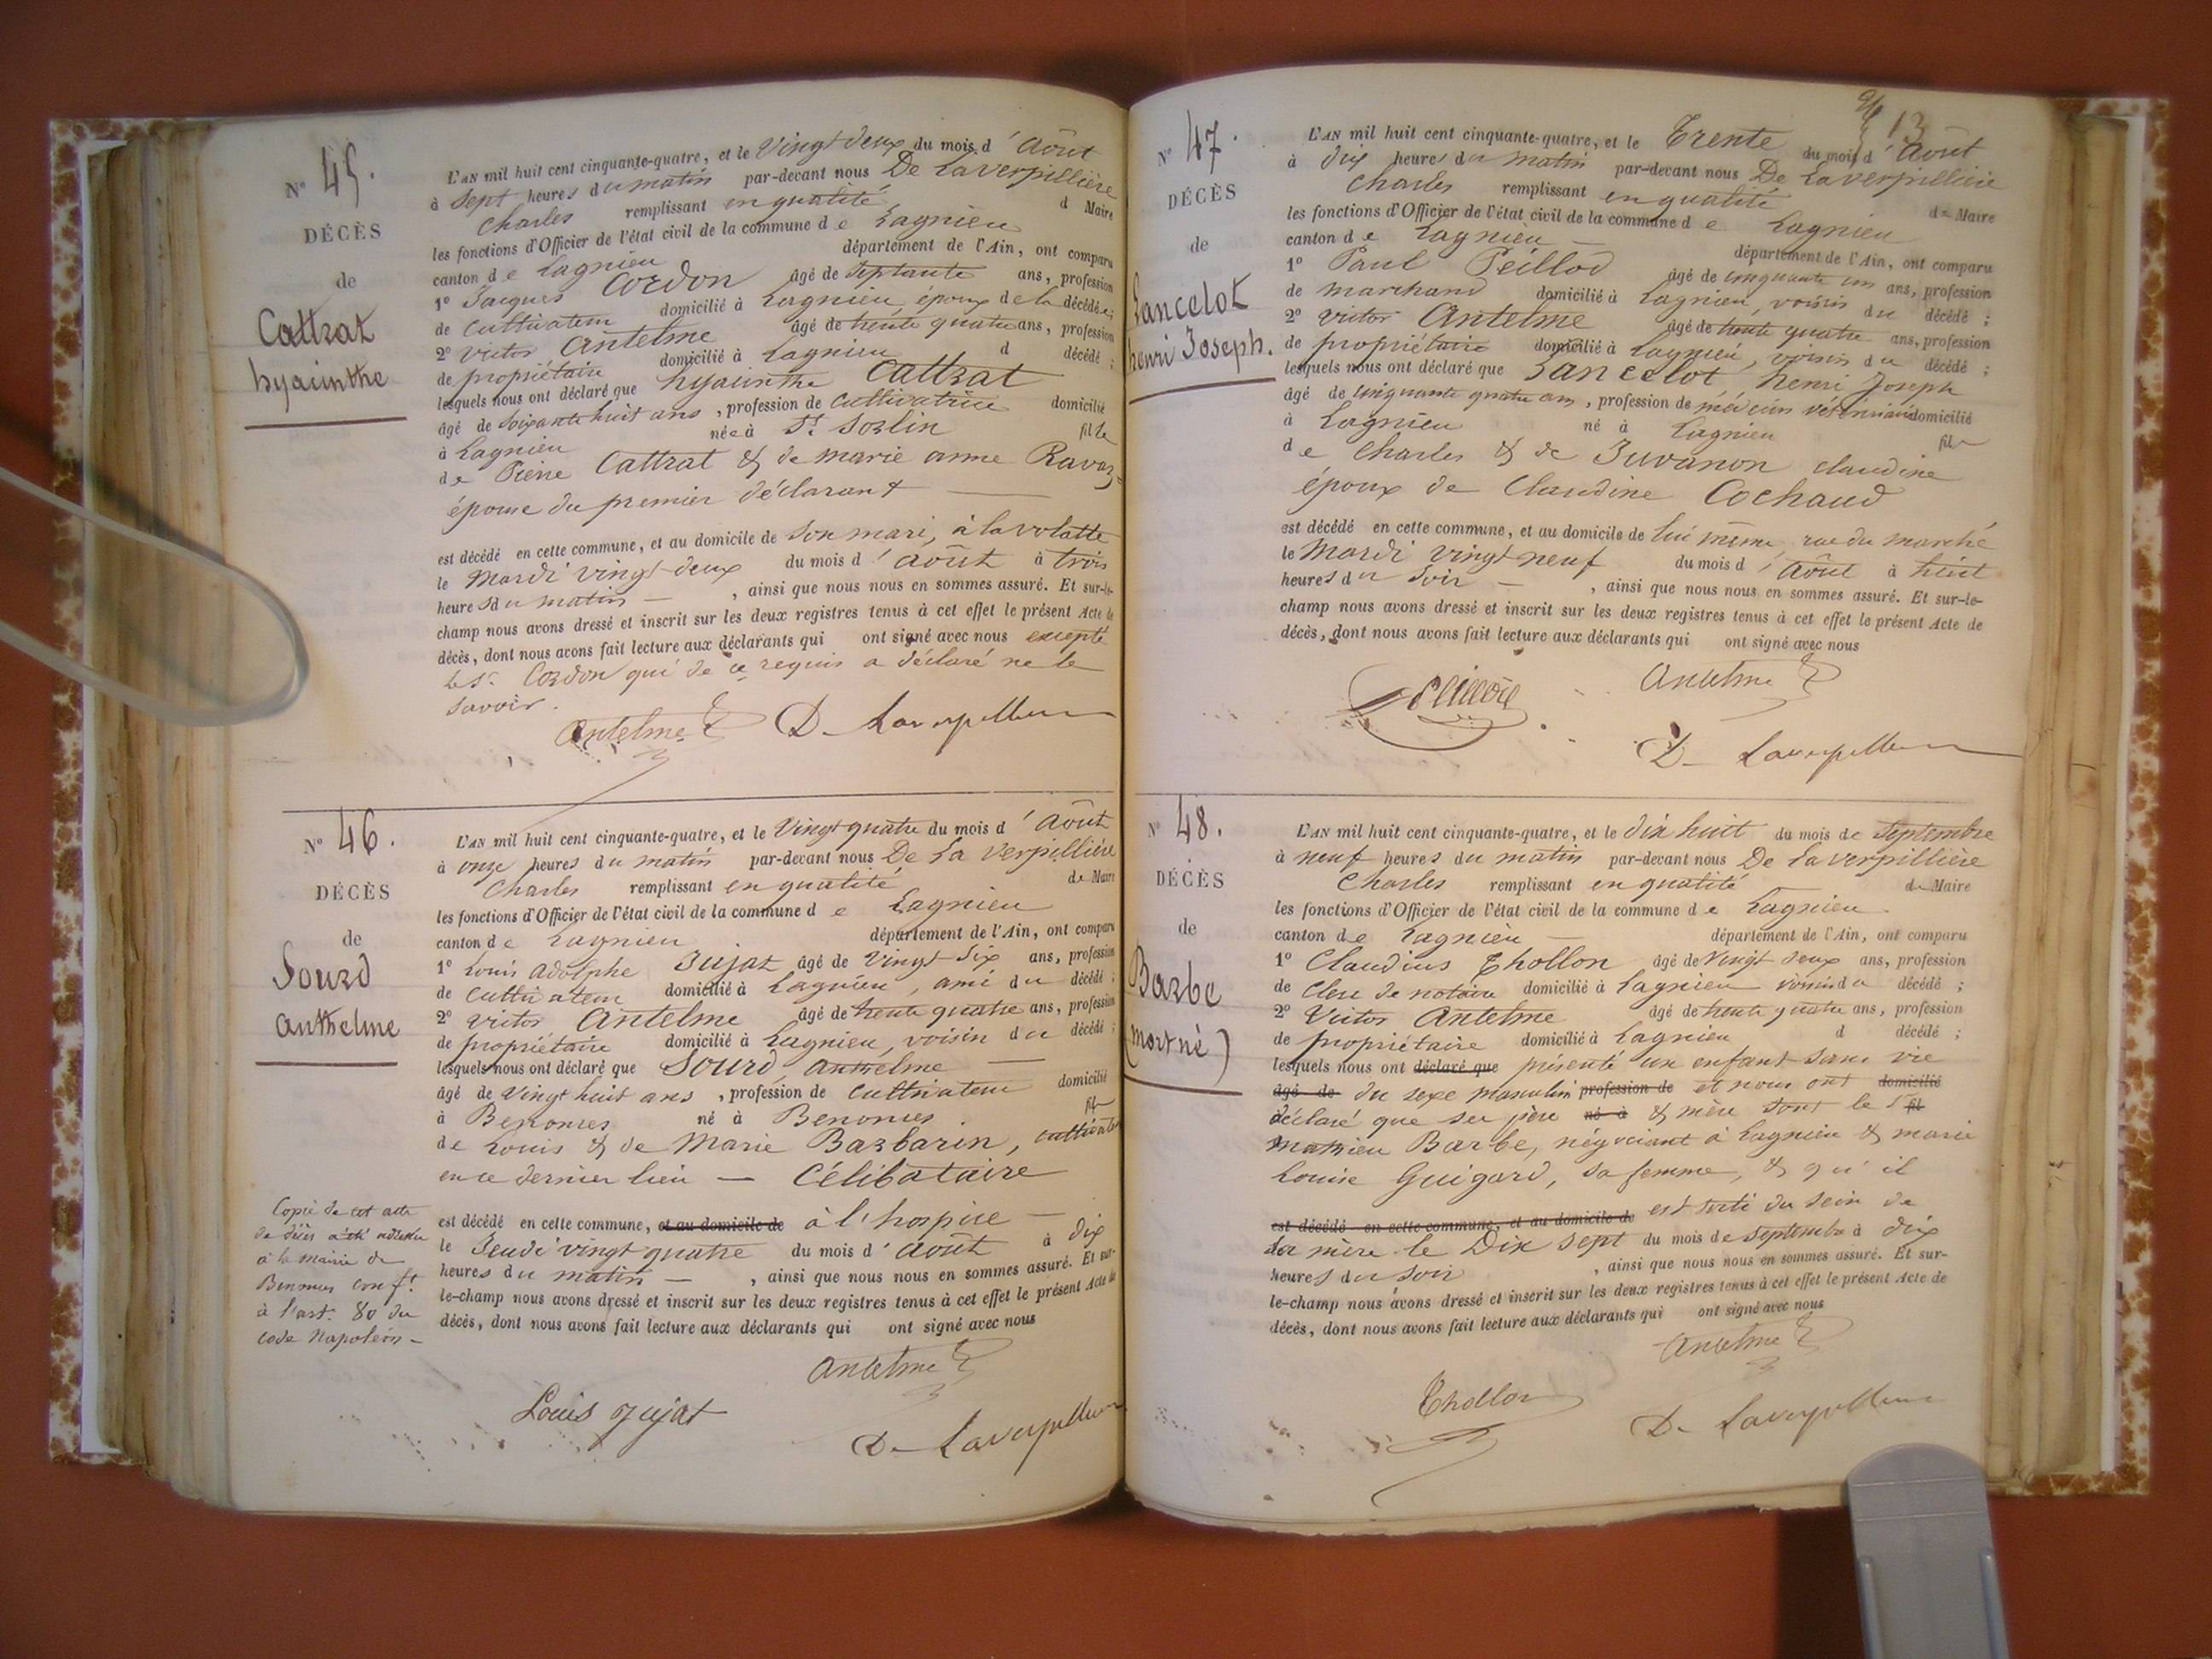 N° 45.
DÉCÈS
de
Cattzat
hyacinthe
L'AN mil huit cent cinquante-quatre, et le Vingt deux du mois d'Août
à Sept heures du matin par-devant nous De Laverpillière
Charles remplissant en qualité d Maire
les fonctions d'Officier de l'état civil de la commune de Lagnieu
canton de Lagnieu département de l'Ain, ont comparu
1° Jacques Cordon âgé de Septante ans, profession
de cultivateur domicilié à Lagnieu, époux de la décédée;
2° Victor Antelme âgé de trente quatre ans, profession
de propriétaire domicilié à Lagnieu d décédé;
lesquels nous ont déclaré que hyacinthe Cattzat
âgé de Soixante huit ans, profession de Cultivatrice domicilié
à Lagnieu née à St Sorlin fille
de Pierre Cattzat & de marie anne Ravaz
épouse du premier déclarant
est décédé en cette commune, et au domicile de son mari, à la volatte
le Mardi vingt-deux du mois d'août à trois
heures du matin —, ainsi que nous nous en sommes assuré. Et sur-le-
champ nous avons dressé et inscrit sur les deux registres tenus à cet effet le présent Acte de
décès, dont nous avons fait lecture aux déclarants qui ont signé avec nous excepté
le Sr. Cordon qui de ce requis a déclaré ne le
savoir.
Antelme D. Laverpilliere
N° 46.
DÉCÈS
de
Sourd
Anthelme
L'AN mil huit cent cinquante-quatre, et le Vingt quatre du mois d'Août
à onze heures du matin par-devant nous De La Verpillière
Charles remplissant en qualité de Maire
les fonctions d'Officier de l'état civil de la commune de Lagnieu
canton de Lagnieu département de l'Ain, ont comparu
1° Louis Adolphe Jujat âgé de Vingt Six ans, profession
de Cultivateur domicilié à Lagnieu, ami du décédé;
2° Victor Antelme âgé de trente quatre ans, profession
de propriétaire domicilié à Lagnieu, voisin du décédé;
lesquels nous ont déclaré que Sourd, Anthelme
âgé de Vingt huit ans, profession de cultivateur domicilié
à Benonces né à Benonces fils
de Louis & de Marie Barbarin, cultivateurs
en ce dernier lieu — Célibataire
est décédé en cette commune, et au domicile de à l'hospice —
le Jeudi vingt quatre du mois d'août à dix
heures du matin —, ainsi que nous nous en sommes assuré. Et sur-
le-champ nous avons dressé et inscrit sur les deux registres tenus à cet effet le présent Acte de
décès, dont nous avons fait lecture aux déclarants qui ont signé avec nous
Copie de cet acte
de décès a été adressée
à la mairie de
Benonces conft.
à l'art. 80 du
code Napoléon —
Antelme
Louis Jujat
D. Laverpilliere
13
N° 47.
DÉCÈS
de
Lancelot
henri Joseph.
L'AN mil huit cent cinquante-quatre, et le Trente du mois d'Août
à dix heures du matin par-devant nous De Laverpillière
Charles remplissant en qualité de Maire
les fonctions d'Officier de l'état civil de la commune de Lagnieu
canton de Lagnieu — département de l'Ain, ont comparu
1° Paul Peillod âgé de cinquante un ans, profession
de marchand domicilié à Lagnieu, voisin du décédé;
2° Victor Antelme âgé de trente quatre ans, profession
de propriétaire domicilié à Lagnieu, voisin du décédé;
lesquels nous ont déclaré que Lancelot, henri Joseph
âgé de cinquante quatre ans, profession de médecin vétérinaire domicilié
à Lagnieu né à Lagnieu fils
de Charles & de Juvanon Claudine
époux de Claudine Cochaud
est décédé en cette commune, et au domicile de lui même, rue du marché
le Mardi vingt neuf du mois d'Août à huit
heures du Soir —, ainsi que nous nous en sommes assuré. Et sur-le-
champ nous avons dressé et inscrit sur les deux registres tenus à cet effet le présent Acte de
décès, dont nous avons fait lecture aux déclarants qui ont signé avec nous
Peillod Antelme
D. Laverpilliere
N° 48.
DÉCÈS
de
Barbe
(mort né)
L'AN mil huit cent cinquante-quatre, et le dix huit du mois de Septembre
à neuf heures du matin par-devant nous De Laverpillière
Charles remplissant en qualité de Maire
les fonctions d'Officier de l'état civil de la commune de Lagnieu
canton de Lagnieu — département de l'Ain, ont comparu
1° Claudius Thollon âgé de Vingt deux ans, profession
de Clerc de notaire domicilié à Lagnieu voisin du décédé;
2° Victor Antelme âgé de trente quatre ans, profession
de propriétaire domicilié à Lagnieu d décédé;
lesquels nous ont déclaré que présenté un enfant sans vie
âgé de du sexe masculin profession de et nous ont domicilié
déclaré que ses père né à & mère sont le Sr fil
Mathieu Barbe, négociant à Lagnieu & marie
Louise Guigard, sa femme, & qu'il
est décédé en cette commune, et au domicile de est sorti du sein de
sa mère le Dix sept du mois de septembre à dix
heures du soir, ainsi que nous nous en sommes assuré. Et sur-
le-champ nous avons dressé et inscrit sur les deux registres tenus à cet effet le présent Acte de
décès, dont nous avons fait lecture aux déclarants qui ont signé avec nous
Antelme
Thollon
D. Laverpilliere